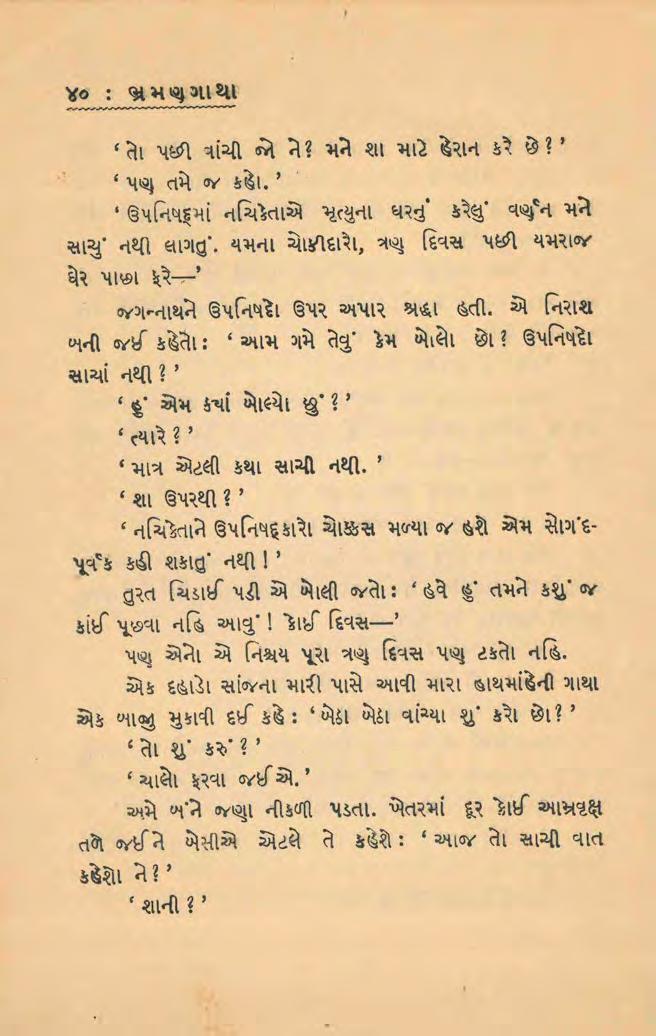 ૪૦ : ભ્રમણગાથા
‘તો પછી વાંચી જો ને? મને શા માટે હેરાન કરે છે?’
‘પણ તમે જ કહો.’
‘ઉપનિષદ્‌માં નચિકેતાએ મૃત્યુના ઘરનું કરેલું વર્ણન મને
સાચું નથી લાગતું. યમના ચોકીદારો, ત્રણ દિવસ પછી યમરાજ
ઘેર પાછા ફરે—’
જગન્નાથને ઉપનિષદો ઉપર અપાર શ્રદ્ધા હતી. એ નિરાશ
બની જઈ કહેતો: ‘આમ ગમે તેવું કેમ બોલો છો? ઉપનિષદો
સાચાં નથી?’
‘હું એમ ક્યાં બોલ્યો છું?’
‘ત્યારે?’
‘માત્ર એટલી કથા સાચી નથી.’
‘શા ઉપરથી?’
‘નચિકેતાને ઉપનિષદ્‌કારો ચોક્કસ મળ્યા જ હશે એમ સોગંદ-
પૂર્વક કહી શકાતું નથી!’
તુરત ચિડાઈ પડી એ બોલી જતો: ‘હવે હું તમને કશું જ
કાંઈ પૂછવા નહિ આવું! કોઈ દિવસ—’
પણ એનો એ નિશ્ચય પૂરા ત્રણ દિવસ પણ ટકતો નહિ.
એક દહાડો સાંજના મારી પાસે આવી મારા હાથમાંહેની ગાથા
એક બાજુ મુકાવી દઈ કહે: ‘બેઠા બેઠા વાંચ્યા શું કરો છો?’
‘તો શું કરું?’
‘ચાલો ફરવા જઈએ.’
અમે બંને જણા નીકળી પડતા. ખેતરમાં દૂર કોઈ આમ્રવૃક્ષ
તળે જઈને બેસીએ એટલે તે કહેશે: ‘આજ તો સાચી વાત
કહેશો ને?’
‘શાની?’